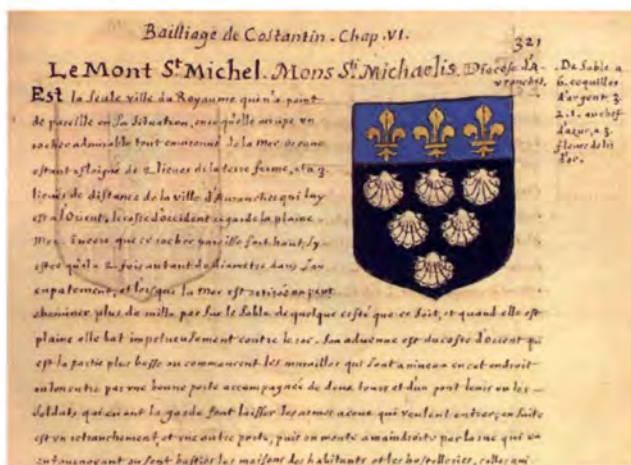 Bailliage de Costantin. Chap. VI.
321
Le Mont St Michel. Mons Sti Michaelis. Diocese d'A
vranches.
De Sable a
6. coquilles
d'argent. 3.
2. 1. au chef
d'azur, a 3.
fleurs de lis
d'or.
Est la seule ville du Royaume qui n'a point
de pareille en sa situation, en ce qu'elle occupe un
rocher admirable tout environné de la Mer Oceane
estant esloigné de 2 lieues de la terre ferme, et a 3.
lieues de distance de la ville d'Auranches qui luy
est a l'Orient, le reste d'occident regarde la plaine
Mer. Encore que ce rocher paroisse fort haut, sy
est ce qu'il a 2 fois autant de diametre dans son
empatement, et lorsque la Mer est retirée on peut
cheminer plus de mille pas sur le sable de quelque costé que ce soit, et quand elle est
plaine elle bat impetueusement contre le roc. Son aduenue est du costé d'Orient qui
est la partie plus basse ou commencent les murailles qui sont a niueau en cet endroit
ou lon entre par vne bonne porte accompagnée de deux tours et d'un pont leuis ou les
soldats qui en ont la garde font laisser les armes a ceux qui veulent entrer, en suite
est vn retranchement, et vne autre porte, puis on monte a main droite par la rue qui va
en tournoyant ou sont basties les maisons des habitants et les hostelleries, celles qui